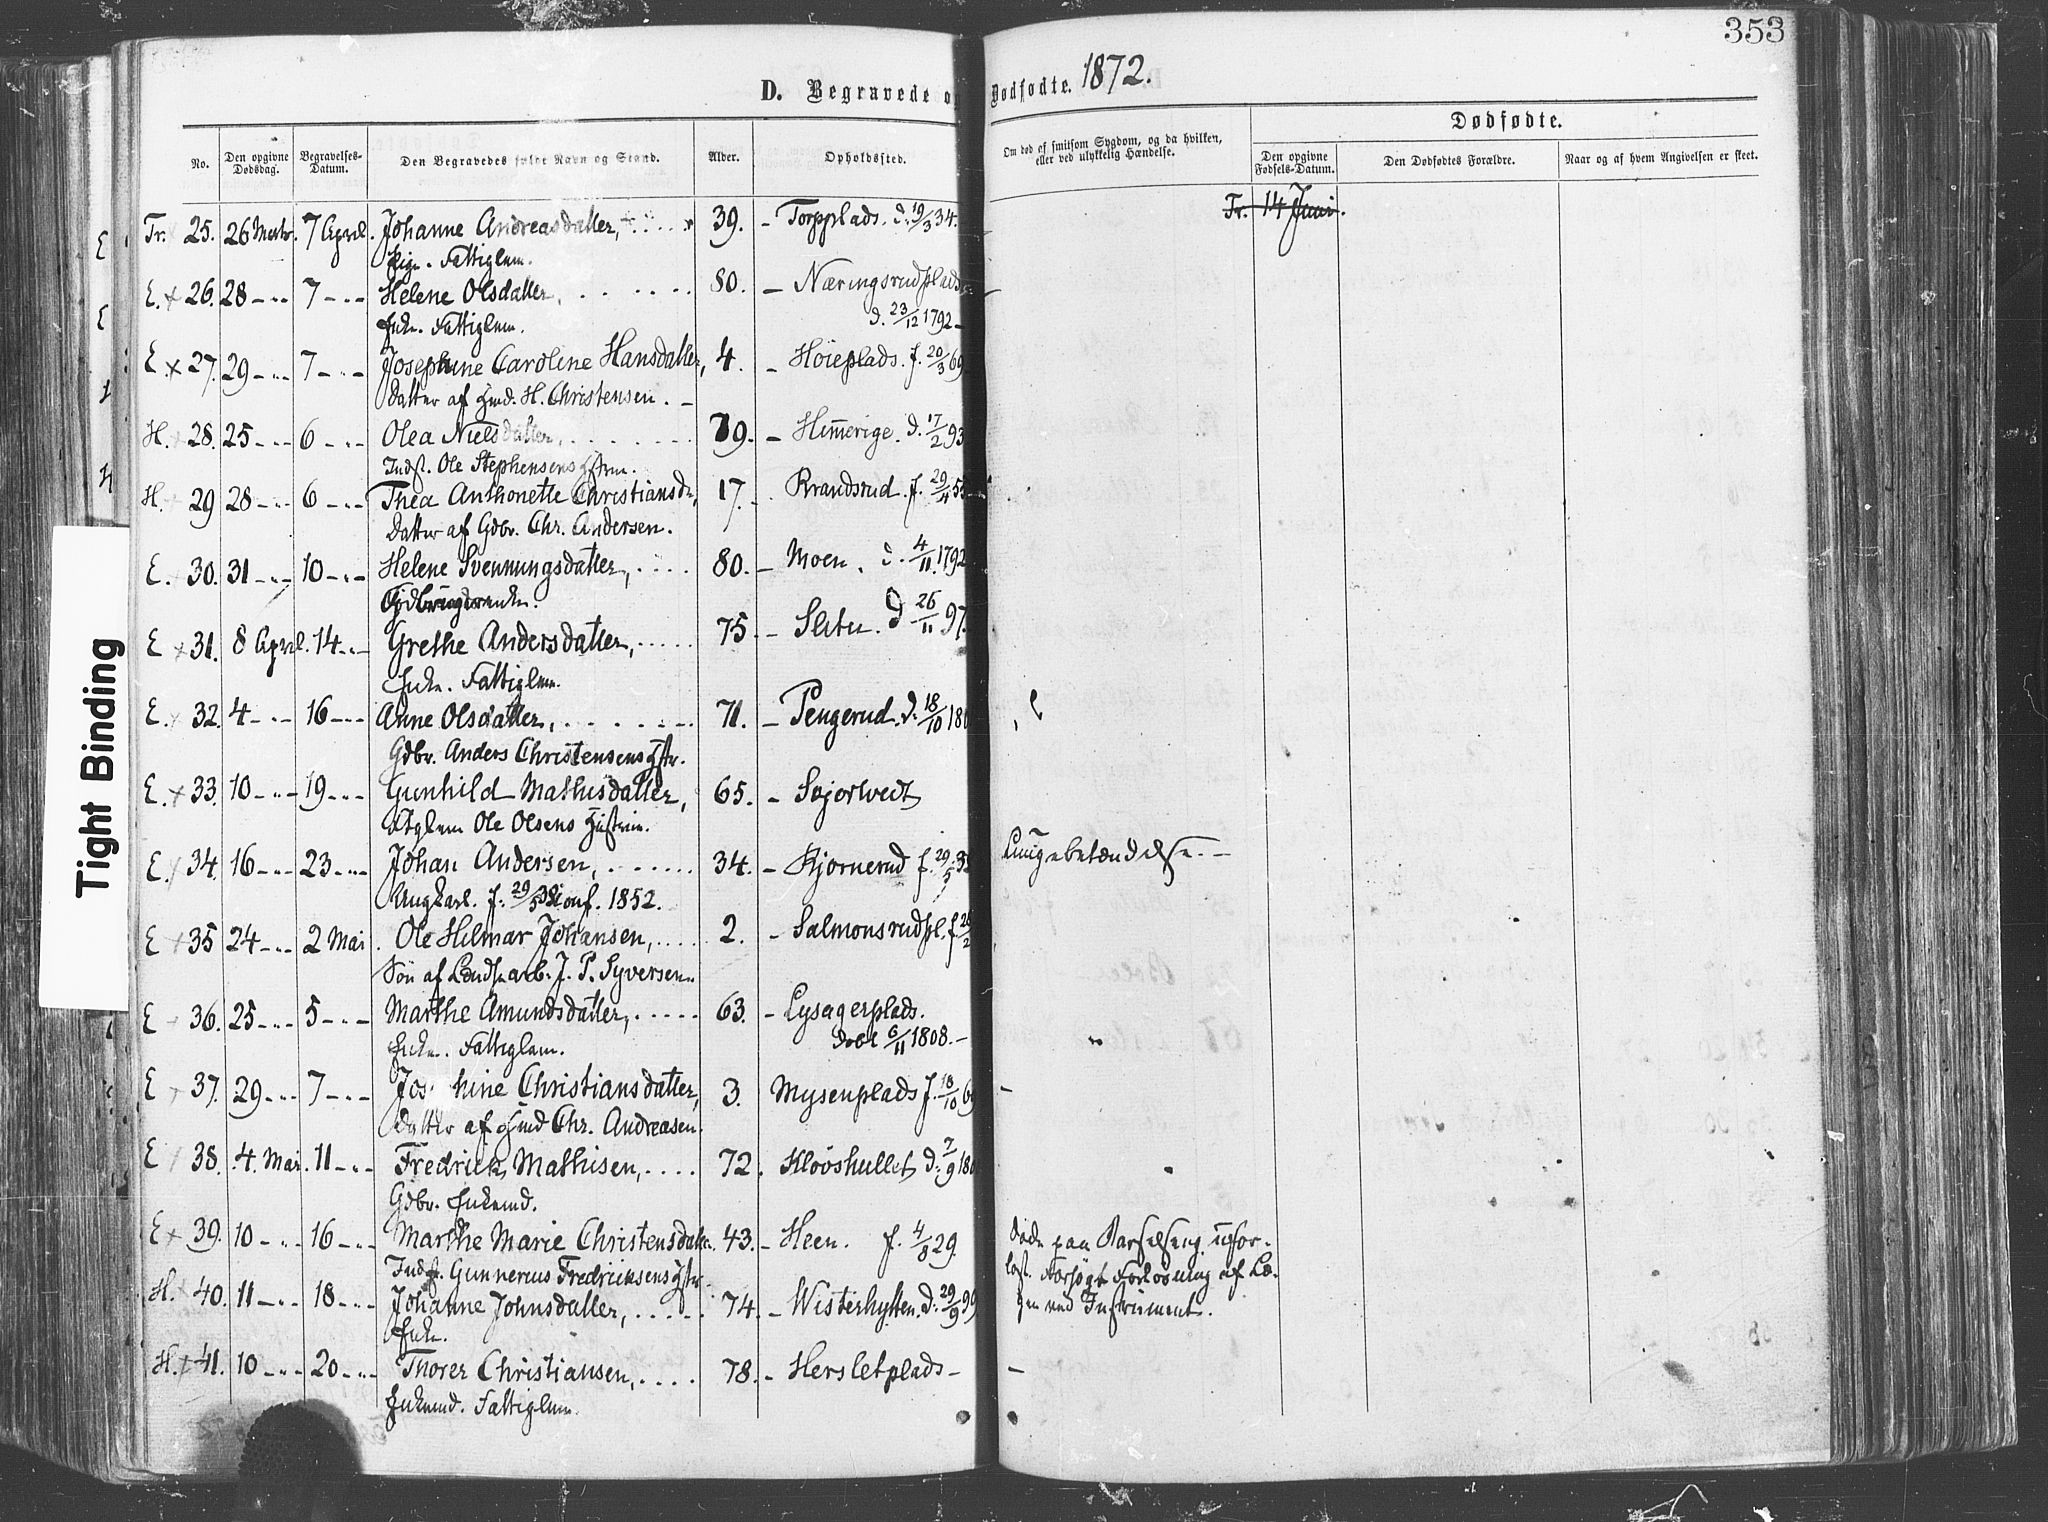 353
D. Begravede og Dødfødte. 1872.
No. Den opgivne Dødsdag. Begravelses-Datum. Den Begravedes fulde Navn og Stand. Alder. Opholdssted. Om død af smitsom Sygdom, og da hvilken, eller ved ulykkelig Hændelse.
Dødfødte.
Den opgivne Fødsels-Datum. Den Dødfødtes Forældre. Naar og af hvem Angivelsen er skeet.
Tr. 14 Juni.
Tr. 25. 26 Marts. 7 April. Johanne Andreasdatter, 39. - Torpplads. d. 19/3 34.
Pige. Fattiglem.
E. x 26. 28 - " - 7 - " - Helene Olsdatter, 80. - Næringsrudplads
Enke. Fattiglem. d. 23/12 1792 -
E. x 27. 29 - " - 7 - " - Josephine Caroline Hansdatter, 4. - Høieplads. f. 20/3 69
Datter af Hmd. H. Christensen. -
H. 28. 25 - " - 6 - " - Olea Nielsdatter, 79. - Himmerige. d. 17/2 93
Indst. Ole Stephensens Hstru.
H. 29 28 - " - 6 - " - Thea Anthonette Christiansd., 17. - Brandsrud. f. 29/4 55
Datter af Gdbr. Chr. Andersen.
E. 30. 31 - " - 10 - " - Helene Svenningsdatter, 80. - Moen. d. 4/11 1792
E x 31. 8 April. 14 - " - Grethe Andersdatter, 75. - Sletn. d. 26/11 97.
Enke. Fattiglem.
E. 32. 4 - " - 16 - " - Anne Olsdatter, 71. - Pengerud. d. 18/10 180
Gdbr. Anders Christensens Hstr.
E. x 33. 10 - " - 19 - " - Gunhild Mathisdatter, 65. -
Ole Olsens Hustrue.
E. 34. 16 - " - 23 - " - Johan Andersen, 34. - Bjørnerud f. 29/5 38 Lungebetændelse. -
Ungkarl. f. 29/5 38 Conf. 1852.
E x 35 24 - " - 2 Mai. Ole Hilmar Johansen, 2. - Salmonsrudpl. f. 26/2
Søn af J. P. Syversen.
E 36. 25 - " - 5 - " - Marthe Amundsdatter, 63. - Lysagerplads.
Enke. Fattiglem. Døbt 6/11 1808. -
E 37. 29 - " - 7 - " - Josephine Christiansdatter, 3. Mysenplads f. 18/10 69 -
Datter af Hmd Chr. Andreasen.
E 38. 4. Mai. 11 - " - Fredrick Mathisen, 72. Kløvshullet d. 7/9 180
Gdbr. Enkemd.
E x 39. 10 - " - 16 - " - Marthe Marie Christensdatter. 43. - Heen. f. 4/8 29. Døde paa Barselseng, ufor-
Indst. Gunnerius Fredricksens Hstr. løst. Forsøgt Forløsning af Læ-
H. x 40. 11 - " - 18 - " - Johanne Johnsdatter, 74. - Wisterhytten. d. 29/9 99 gen ved Instrument.
Enke.
H. x 41. 10 - " - 20 - " - Thorer Christiansen, 78. - Hersletplads - -
Enkemd. Fattiglem.
Tight Binding